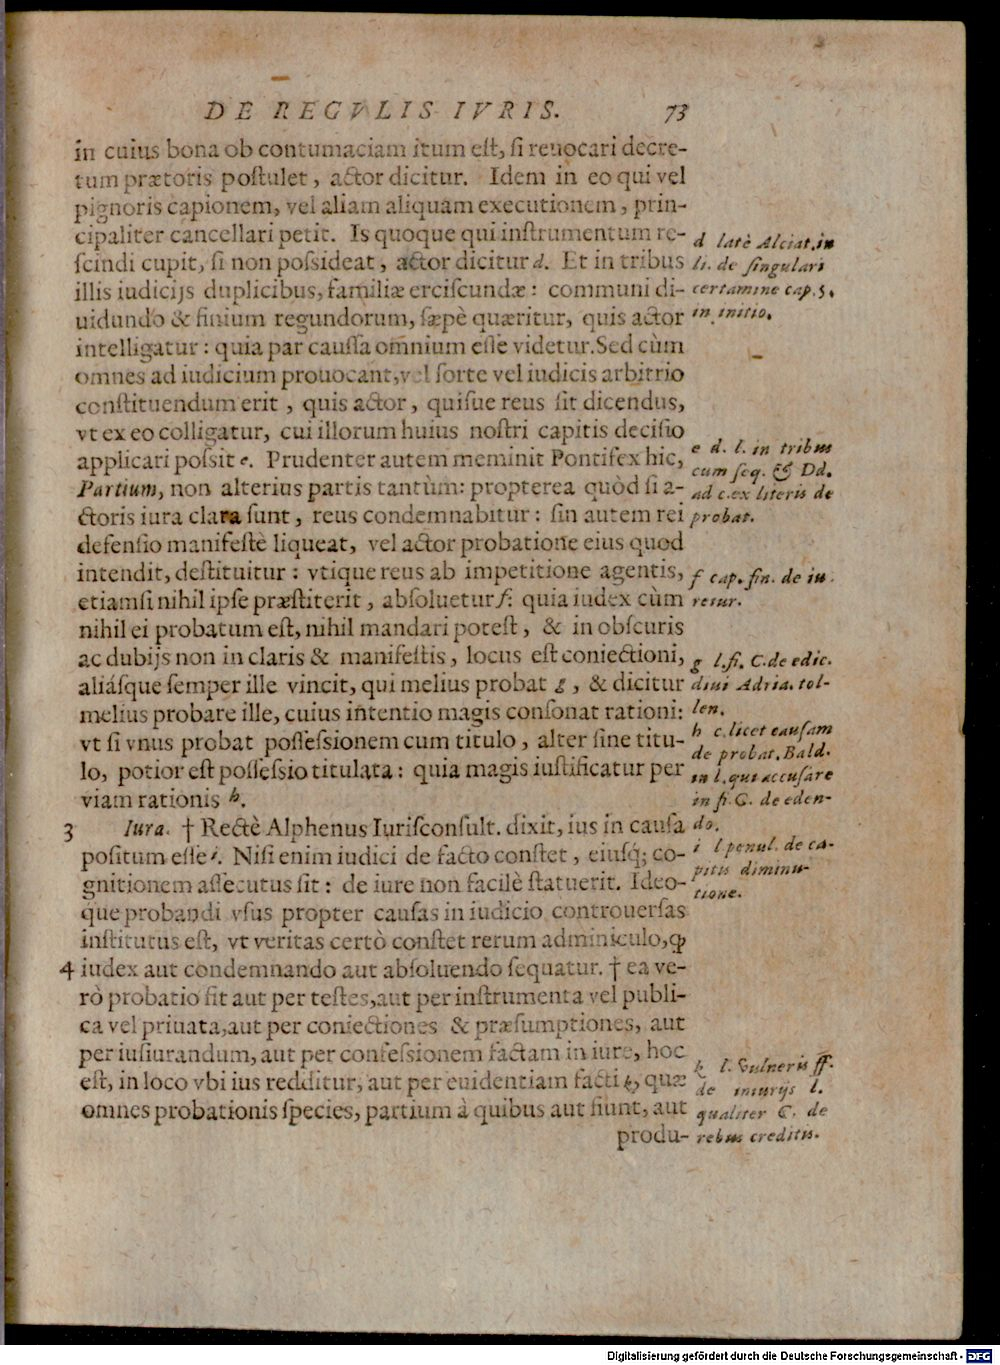 DE REGVLIS IVRIS. 73
in cuius bona ob contumaciam itum est, si reuocari decre-
tum prætoris postulet, actor dicitur. Idem in eo qui vel
pignoris capionem, vel aliam aliquam executionem, prin-
cipaliter cancellari petit. Is quoque qui instrumentum re-
scindi cupit, si non possideat, actor dicitur d. Et in tribus
illis iudicijs duplicibus, familiæ erciscundæ: communi di-
uidundo & finium regundorum, sæpè quæritur, quis actor
intelligatur: quia par caussa omnium esse videtur. Sed cùm
omnes ad iudicium prouocant, vel sorte vel iudicis arbitrio
constituendum erit, quis actor, quisue reus sit dicendus,
vt ex eo colligatur, cui illorum huius nostri capitis decisio
applicari possit e. Prudenter autem meminit Pontifex hic,
Partium, non alterius partis tantùm: propterea quòd si a-
ctoris iura clara sunt, reus condemnabitur: sin autem rei
defensio manifestè liqueat, vel actor probatione eius quod
intendit, destituitur: vtique reus ab impetitione agentis,
etiamsi nihil ipse præstiterit, absoluetur f: quia iudex cùm
nihil ei probatum est, nihil mandari potest, & in obscuris
ac dubijs non in claris & manifestis, locus est coniectioni,
aliásque semper ille vincit, qui melius probat g, & dicitur
melius probare ille, cuius intentio magis consonat rationi:
vt si vnus probat possessionem cum titulo, alter sine titu-
lo, potior est possessio titulata: quia magis iustificatur per
viam rationis h.
3 Iura. † Rectè Alphenus Iurisconsult. dixit, ius in causa
positum esse i. Nisi enim iudici de facto constet, eiusq́; co-
gnitionem assecutus sit: de iure non facilè statuerit. Ideo-
que probandi vsus propter causas in iudicio controuersas
institutus est, vt veritas certò constet rerum adminiculo, ꝙ
4 iudex aut condemnando aut absoluendo sequatur. † ea ve-
rò probatio fit aut per testes, aut per instrumenta vel publi-
ca vel priuata, aut per coniectiones & præsumptiones, aut
per iusiurandum, aut per confessionem factam in iure, hoc
est, in loco vbi ius redditur, aut per euidentiam facti k, quæ
omnes probationis species, partium à quibus aut fiunt, aut
produ-
d latè Alciat. in
li. de singulari
certamine cap. 5.
in. initio.
e d. l. in tribus
cum seq. & Dd.
ad c. ex literis de
probat.
f cap. fin. de iu.
reiur.
g l. fi. C. de edic.
diui Adria. tol-
len.
h c. licet causam
de probat. Bald.
in l. qui accusare
in fi. C. de eden-
do.
i l penul. de ca-
pitis diminu-
tione.
k l. Vulneris ff.
de iniurijs l.
qualiter C. de
rebus creditis.
Digitalisierung gefördert durch die Deutsche Forschungsgemeinschaft - DFG